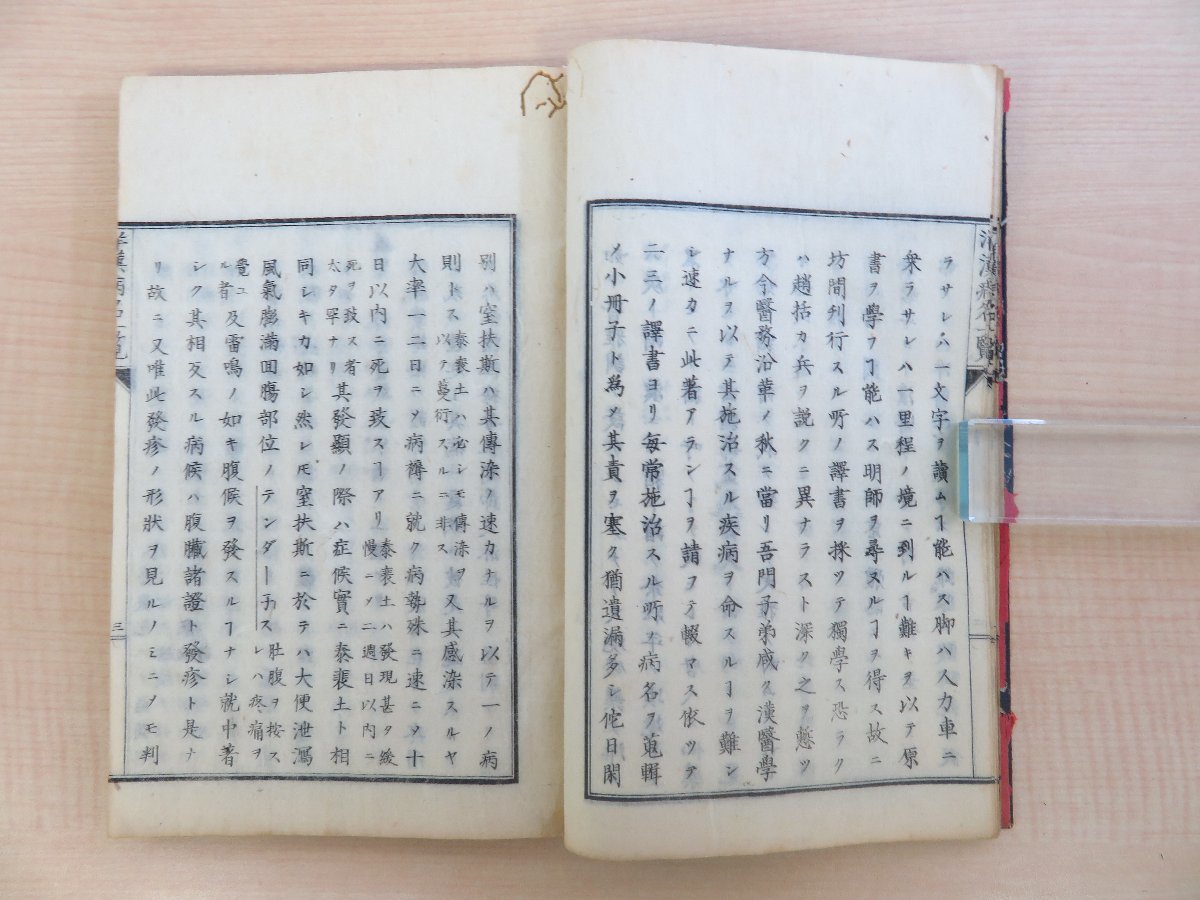 洋漢病名一覽
ラサレハ一文字ヲ讀ムヿ能ハス脚ハ人力車ニ
乘ラサレハ一里程ノ境ニ到ルヿ難キヲ以テ原
書ヲ學フヿ能ハス明師ヲ尋ヌルヿヲ得ス故ニ
坊間刊行スル所ノ譯書ヲ採ツテ獨學ス恐ラク
ハ趙括カ兵ヲ説クニ異ナラスト深ク之ヲ慙ツ
方今醫務沿革ノ秋ニ當リ吾門子弟咸ク漢醫學
ナルヲ以テ其施治スル疾病ヲ命スルヿヲ難ン
シ速カニ此著アランヿヲ請フテ輟マス依ツテ
二三ノ譯書ヨリ毎常施治スル所ノ病名ヲ蒐輯
メ小冊子ト為メ其責ヲ塞ク猶遺漏多シ佗日閑
別ハ窒扶斯ハ其傳染ノ速カナルヲ以テ一ノ病
則トス泰衰土ハ必シモ傳染ヲ以テ蔓衍スルニ非ス又其感染スルヤ
大率一二日ニメ病褥ニ就ク病勢殊ニ速ニメ十
日以内ニ死ヲ致スヿアリ泰衰土ハ發現甚タ緩慢ニメ二週日以内ニ
死ヲ致ス者太タ罕ナリ其發顯ノ際ハ症候實ニ泰衰土ト相
同シキカ如シ然レモ窒扶斯ニ於テハ大便泄瀉
風氣膨滿回膓部位ノテンダー子ス肚腹ヲ按スレハ疼痛ヲ
覺ユル者及雷鳴ノ如キ腹候ヲ發スルヿナシ就中著
シク其相反スル病候ハ腹臟諸證ト發疹ト是ナ
リ故ニ又唯此發疹ノ形狀ヲ見ルノミニメモ判
洋漢病名一覽
三